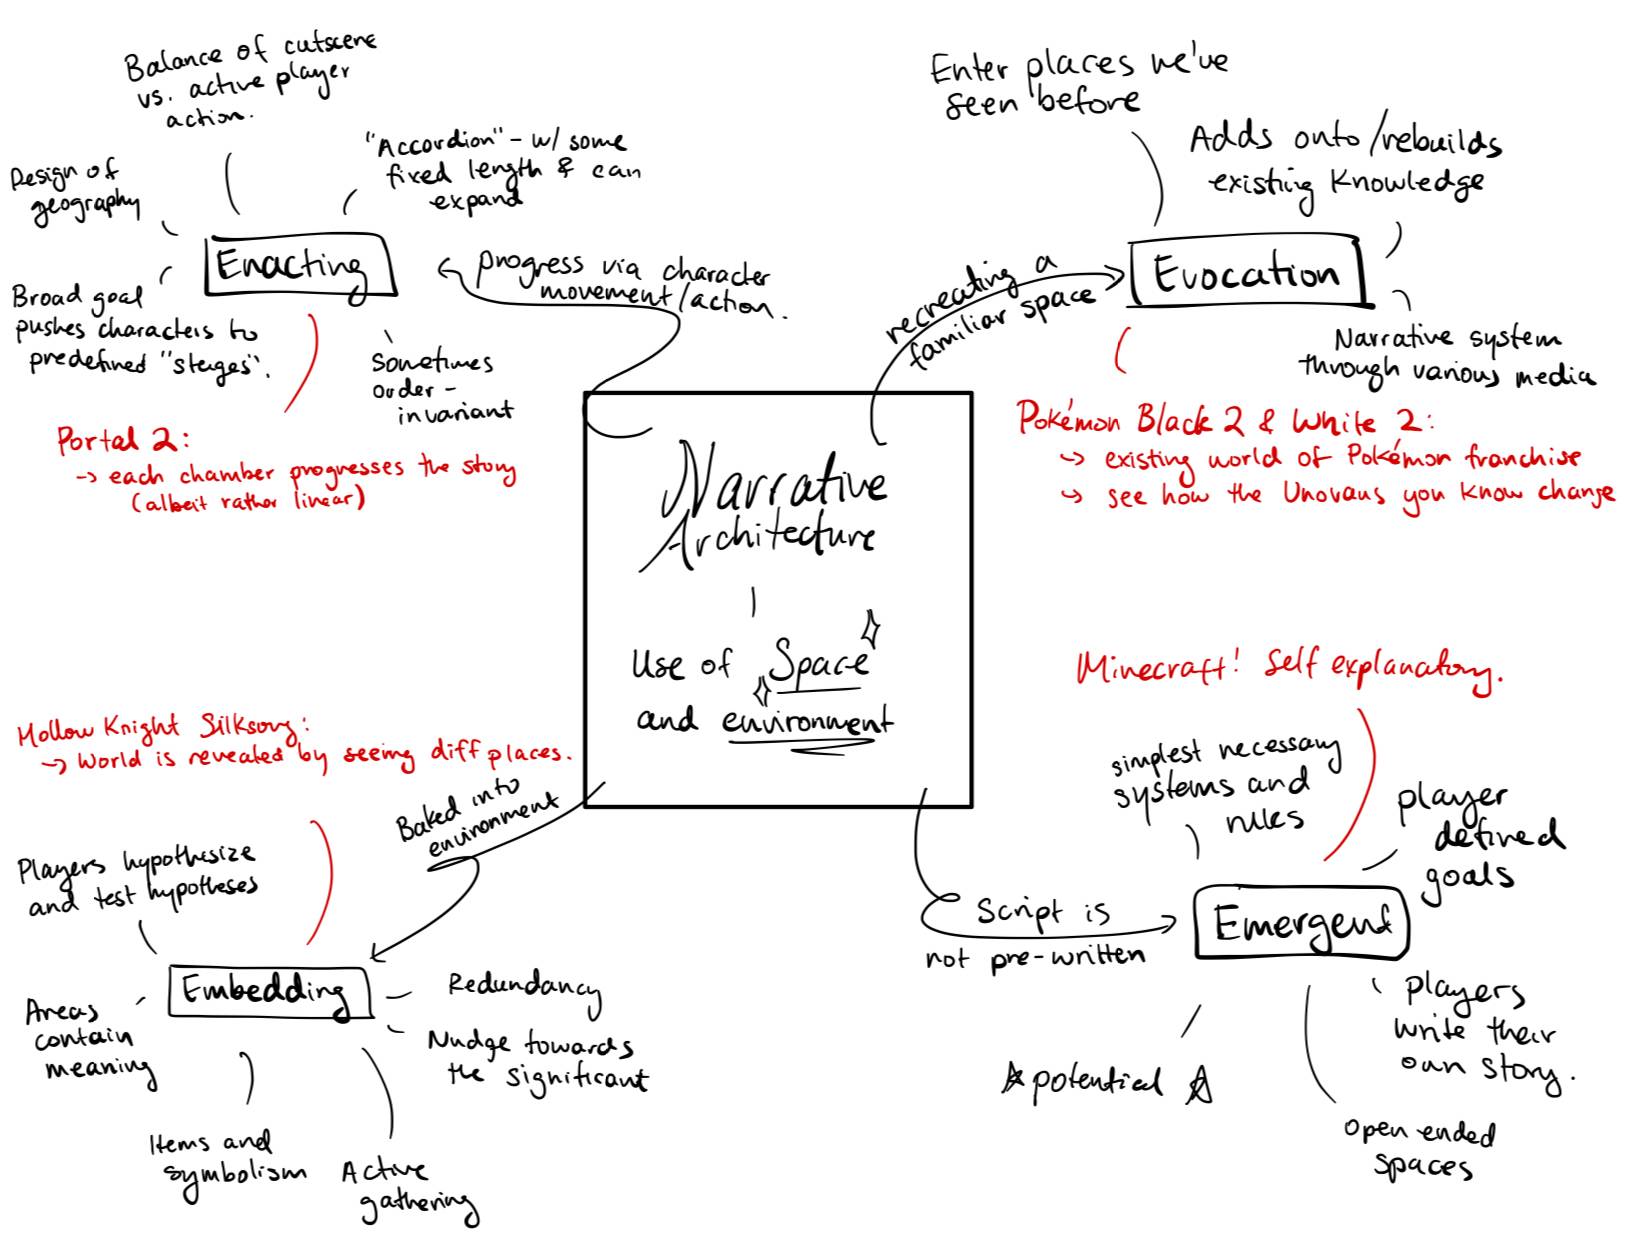 Balance of cutscene
vs. active player
action.
"Accordion" - w/ some
fixed length & can
expand
Design of
geography
Enacting
Broad goal
pushes characters to
predefined "stages".
Sometimes
order-
invariant
progress via character
movement/action.
Portal 2:
→ each chamber progresses the story
(albeit rather linear)
Enter places we've
seen before
Adds onto/rebuilds
existing knowledge
Evocation
recreating a
familiar space
Narrative system
through various media
Pokémon Black 2 & White 2:
→ existing world of Pokémon franchise
→ see how the Unovans you know change
Narrative
Architecture
Use of Space
and environment
Hollow Knight Silksong:
→ World is revealed by seeing diff places.
Baked into
environment
Players hypothesize
and test hypotheses
Embedding
Redundancy
Nudge towards
the significant
Areas
contain
meaning
Items and
symbolism
Active
gathering
Minecraft! Self explanatory.
simplest necessary
systems and
rules
player
defined
goals
Emergent
Script is
not pre-written
☆ potential ☆
players
write their
own story.
open ended
spaces